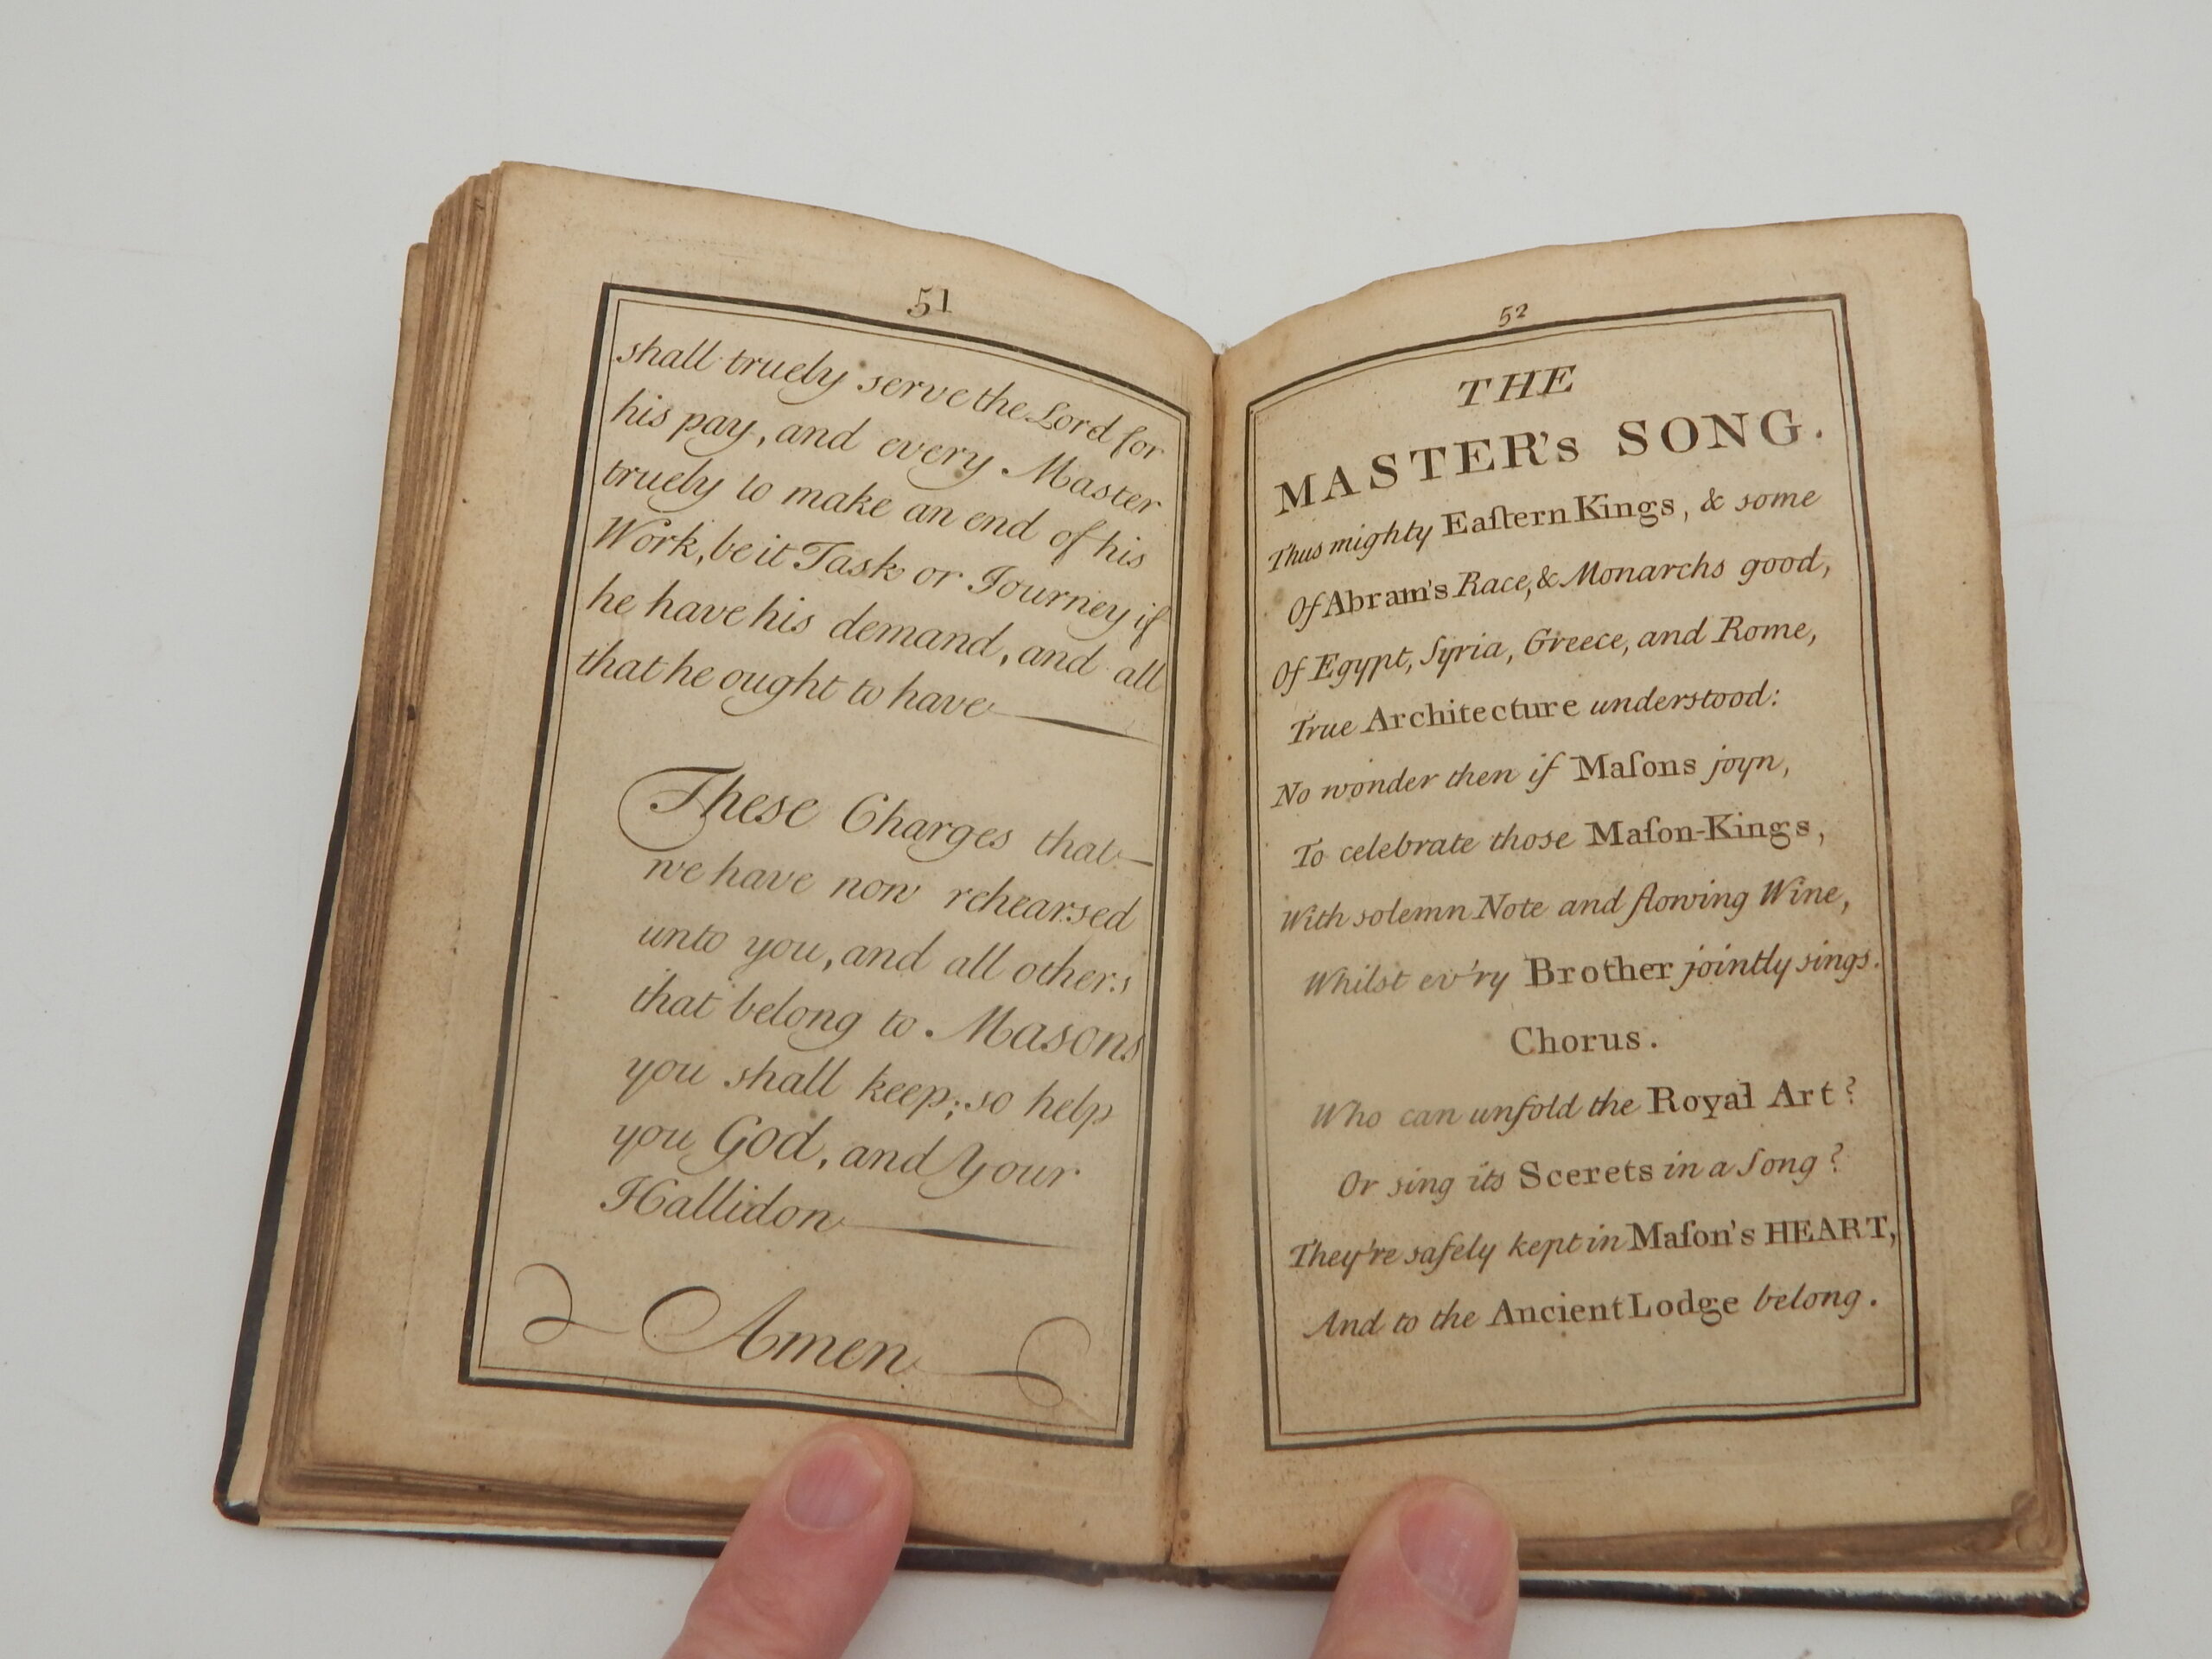 51
shall truely serve the Lord for
his pay, and every Master
truely to make an end of his
Work, be it Task or Journey if
he have his demand, and all
that he ought to have
These Charges that
we have now rehearsed
unto you, and all others
that belong to Masons
you shall keep; so help
you God, and Your
Hallidon
Amen
52
THE
MASTER's SONG.
Thus mighty Eaſtern Kings, & some
Of Abram's Race, & Monarchs good,
Of Egypt, Syria, Greece, and Rome,
True Architecture understood:
No wonder then if Maſons joyn,
To celebrate those Maſon-Kings,
With solemn Note and flowing Wine,
Whilst ev'ry Brother jointly sings.
Chorus.
Who can unfold the Royal Art?
Or sing its Scerets in a Song?
They're safely kept in Maſon's HEART,
And to the Ancient Lodge belong.